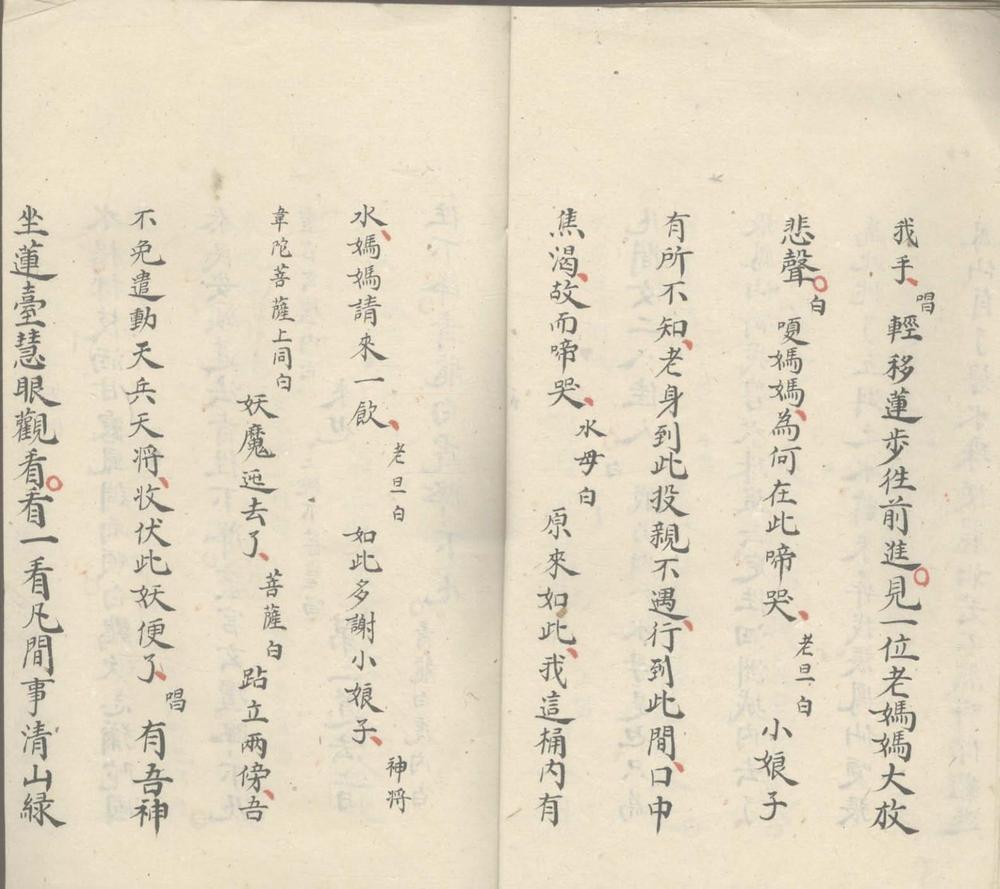 我手、唱輕移蓮步往前進。見一位老媽媽大放
悲聲。白嗄媽媽、為何在此啼哭、老旦白小娘子
有所不知、老身到此投親不遇、行到此間、口中
焦渴、故而啼哭、水母白原來如此、我這桶內有
水、媽媽請來一飲、老旦白如此多謝小娘子、神將
韋陀菩薩上同白妖魔逃去了、菩薩白跕立兩傍、吾
不免遣動天兵天將、收伏此妖便了、唱有吾神
坐蓮臺慧眼觀看。看一看凡間事清山緑